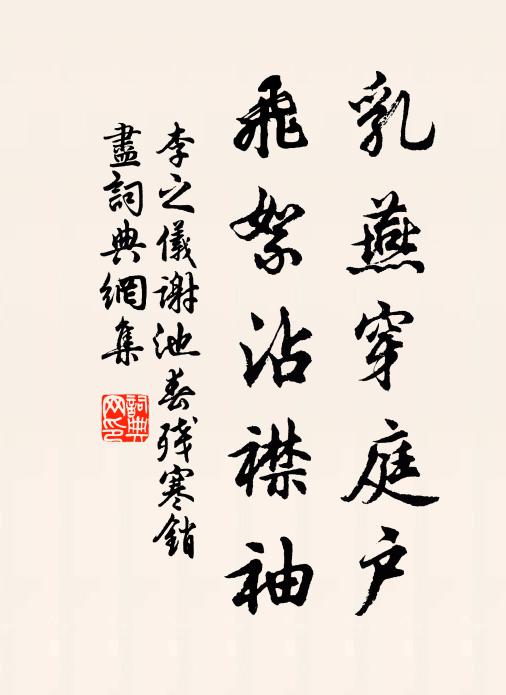 乳燕穿庭户
飛絮沾襟袖
李之儀謝池春殘寒銷
盡詞典網集
詞典
网印